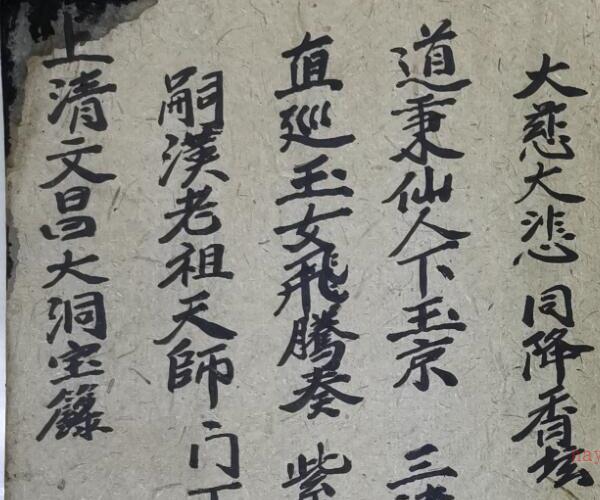 大慈大悲 同降香坛
道秉仙人下玉京 三
直巡玉女飛騰奏 紫
嗣漢老祖天師 门下
上清文昌大洞宝籙